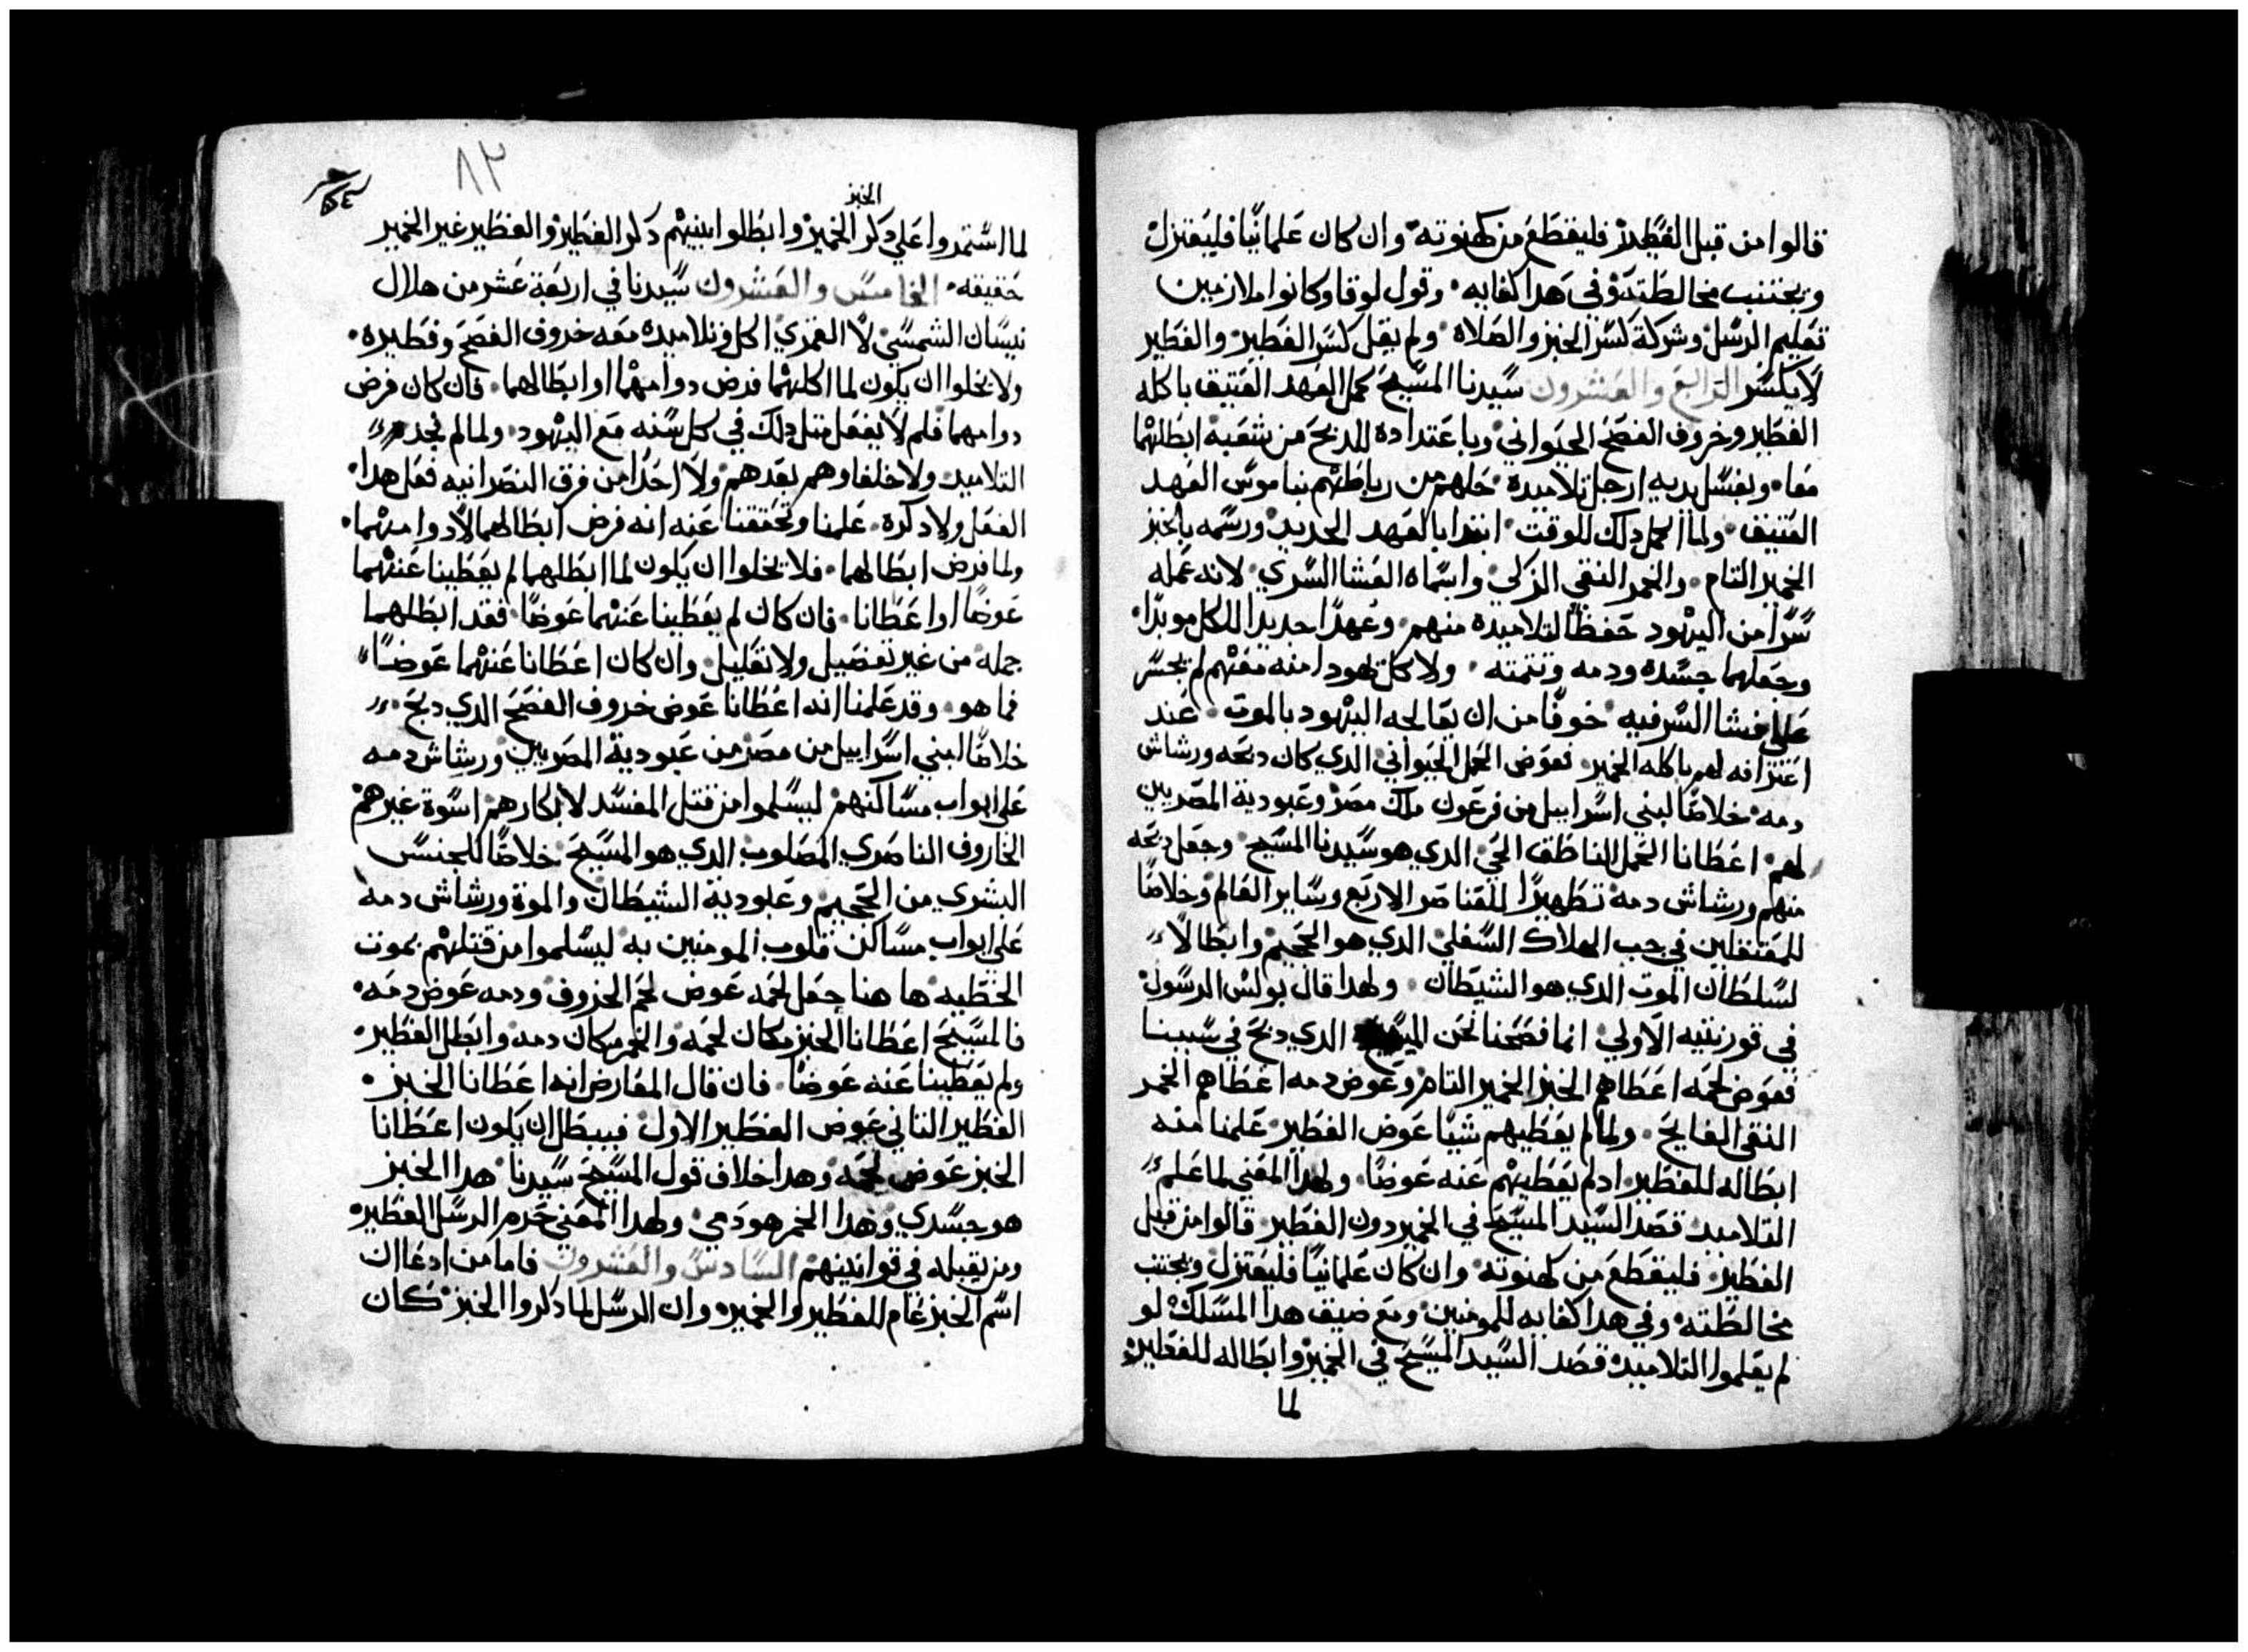 قالوا من قبل الفطير فليقطع من كهنوته وان كان علمانيًا فليعتزل
ويجتنب مخالطته وفي هدا كفايه وقول لوقا وكانوا ملازمين
تعليم الرسل وشركة كسر الخبز والصلاه ولم يقل كسر الفطير والفطير
لا يكسر الرابع والعشرون سيدنا المسيح كمل العهد العتيق باكله
الفطير وخروف الفصح الحيواني وباعتداده للدبح من شعبه ابطلهما
معا وبغسل يديه ارجل تلاميده حلهم من رباطهم بناموس العهد
العتيق ولما اكمل دلك للوقت ابتدا بالعهد الجديد ورسمه بالخبز
الخمير التام والخمر النقي الزكي واسماه العشا السري لانه عمله
سرًا من اليهود حفظًا لتلاميده منهم وعهدًا جديدا للكل موبدًا
وجعلهما جسده ودمه وتتمته ولا كل يهودا منه معهم لم يجسر
على فشا السر فيه خوفًا من ان يعالجه اليهود بالموت عند
اعترافه لهم باكله الخمير فعوض الحمل الحيواني الدي كان دبحه ورشاش
دمه خلاصًا لبني اسراييل من فرعون ملك مصر وعبودية المصريين
لهم اعطانا الحمل الناطق الحي الدي هو سيدنا المسيح وجعل دبحه
منهم ورشاش دمه تطهيرًا للعناصر الاربع وساير العالم وخلاصًا
للمعتقلين في جب الهلاك السفلي الدي هو الجحيم وابطالًا
لسلطان الموت الدي هو الشيطان ولهدا قال بولس الرسول
في قورنتيه الاولي انما فصحنا نحن المسيح الدي دبح في سببنا
فعوض لحمه اعطاهم الخبز الخمير التام وعوض دمه اعطاهم الخمر
النقي الفايح ولما لم يعطيهم شيًا عوض الفطير علمنا منه
ابطاله للفطير ادلم يعطيهم عنه عوضًا ولهدا المعني لما علم
التلاميد قصد السيد المسيح في الخمير دون الفطير قالوا من قبل
الفطير فليقطع من كهنوته وان كان علمانيًا فليعتزل ويجتنب
مخالطته وفي هدا كفايه للمومنين ومع ضيق هدا المسلك لو
لم يعلموا التلاميد قصد السيد المسيح في الخمير وابطاله للفطير
لما
٨٣
الخبز
لما استمروا على دكر الخمير وابطلوا بينهم دكر الفطير والفطير غير الخمير
حقيقه الخامس والعشرون سيدنا في اربعة عشر من هلال
نيسان الشمسي لا القمري اكل وتلاميده معه خروف الفصح وفطيره
ولا يخلوا ان يكون لما اكلهما فرض دوامهما او ابطالهما فان كان فرض
دوامهما فلم لا يفعل متل دلك في كل سنه مع اليهود ولما لم نجد
التلاميد ولا خلفاوهم بعدهم ولا احدًا من فرق النصرانيه فعل هدا
الفعل ولا دكره علمنا وتحققنا عنه انه فرض ابطالهما لا دوامهما
ولما فرض ابطالهما فلا يخلوا ان يكون لما ابطلهما لم يعطينا عنهما
عوضًا او اعطانا فان كان لم يعطينا عنهما عوضًا فقد ابطلهما
جمله من غير تفضيل ولا تعليل وان كان اعطانا عنهما عوضًا
فما هو وقد علمنا انه اعطانا عوض خروف الفصح الدي دبح
خلاصًا لبني اسراييل من مصر من عبودية المصريين ورشاش دمه
على ابواب مساكنهم ليسلموا من قتل المفسد لابكارهم اسوة غيرهم
الخاروف الناصري المصلوب الدي هو المسيح خلاصًا للجنس
البشري من الجحيم وعبودية الشيطان والموة ورشاش دمه
على ابواب مساكن قلوب المومنين به ليسلموا من قتلهم بموت
الخطيه ها هنا جعل لحمه عوض لحم الخروف ودمه عوض دمه
فالمسيح اعطانا الخبز مكان لحمه والخمر مكان دمه وابطل الفطير
ولم يعطينا عنه عوضًا فان قال المعارض انه اعطانا الخبز
الفطير التاني عوض الفطير الاول فيبطل ان يكون اعطانا
الخبز عوض لحمه وهدا خلاف قول المسيح سيدنا هدا الخبز
هو جسدي وهدا الخمر هو دمي ولهدا المعني حرم الرسل الفطير
ومن يقبله في قوانينهم السادس والعشرون فاما من ادعا ان
اسم الخبز عام للفطير والخمير وان الرسل لما دكروا الخبز كان